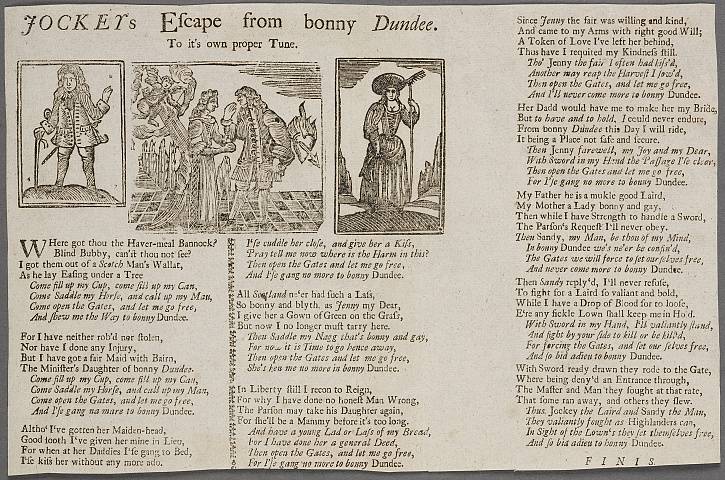 JOCKEYs Eſcape from bonny Dundee.
To it's own proper Tune.
WHere got thou the Haver-meal Bannock?
Blind Bubby, can'ſt thou not ſee?
I got them out of a Scotch Man's Wallat,
As he lay Eaſing under a Tree
Come fill up my Cup, come fill up my Can,
Come Saddle my Horſe, and call up my Man,
Come open the Gates, and let me go free,
And ſhew me the Way to bonny Dundee.
For I have neither rob'd nor ſtolen,
Nor have I done any Injury,
But I have got a fair Maid with Bairn,
The Miniſter's Daughter of bonny Dundee.
Come fill up my Cup, come fill up my Can,
Come Saddle my Horſe, and call up my Man,
Come open the Gates, and let me go free,
And I'ſe gang no more to bonny Dundee.
Altho' I've gotten her Maiden-head,
Good ſooth I've given her mine in Lieu,
For when at her Daddies I'ſe gang to Bed,
I'ſe kiſs her without any more ado.
I'ſe cuddle her cloſe, and give her a Kiſs,
Pray tell me now where is the Harm in this?
Then open the Gates and let me go free,
And I'ſe gang no more to bonny Dundee.
All Scotland ne'er had ſuch a Laſs,
So bonny and blyth as Jenny my Dear,
I give her a Gown of Green on the Graſs,
But now I no longer muſt tarry here.
Then Saddle my Naeg that's bonny and gay,
For now it is Time to go hence away,
Then open the Gates and let me go free,
She's ken me no more in bonny Dundee.
In Liberty ſtill I recon to Reign,
For why I have done no honeſt Man Wrong,
The Parſon may take his Daughter again,
For ſhe'll be a Mammy before it's too long.
And have a young Lad or Laſs of my Breed,
For I have done her a general Deed,
Then open the Gates, and let me go free,
For I'ſe gang no more to bonny Dundee.
Since Jenny the fair was willing and kind,
And came to my Arms with right good Will;
A Token of Love I've left her behind,
Thus have I requited my Kindneſs ſtill.
Tho' Jenny the fair I often had kiſs'd,
Another may reap the Harveſt I ſow'd,
Then open the Gates, and let me go free,
And I'll never come more to bonny Dundee.
Her Dad would have me to make her my Bride,
But to have and to hold, I could never endure,
From bonny Dundee this Day I will ride,
It being a Place not ſafe and ſecure.
Then Jenny farewell, my Joy and my Dear,
With Sword in my Hand the Paſſage I'ſe clear,
Then open the Gates and let me go free,
For I'ſe gang no more to bonny Dundee.
My Father he is a mukle good Laird,
My Mother a Lady bonny and gay,
Then while I have Strength to handle a Sword,
The Parſon's Requeſt I'll never obey.
Then Sandy, my Man, be thou of my Mind,
In bonny Dundee we's ne'er be confin'd,
The Gates we will force to ſet our ſelves free,
And never come more to bonny Dundee.
Then Sandy reply'd, I'll never refuſe,
To fight for a Laird ſo valiant and bold,
While I have a Drop of Blood for to loſe,
E're any fickle Lown ſhall keep me in Hold.
With Sword in my Hand, I'll valiantly ſtand,
And fight by your ſide to kill or be kill'd,
For forcing the Gates, and ſet our ſelves free,
And ſo bid adieu to bonny Dundee.
With Sword ready drawn they rode to the Gate,
Where being deny'd an Entrance through,
The Maſter and Man they fought at that rate,
That ſome ran away, and others they ſlew.
Thus Jockey the Laird and Sandy the Man,
They valiantly fought as Highlanders can,
In Sight of the Lown's they ſet themſelves free,
And ſo bid adieu to bonny Dundee.
FINIS.